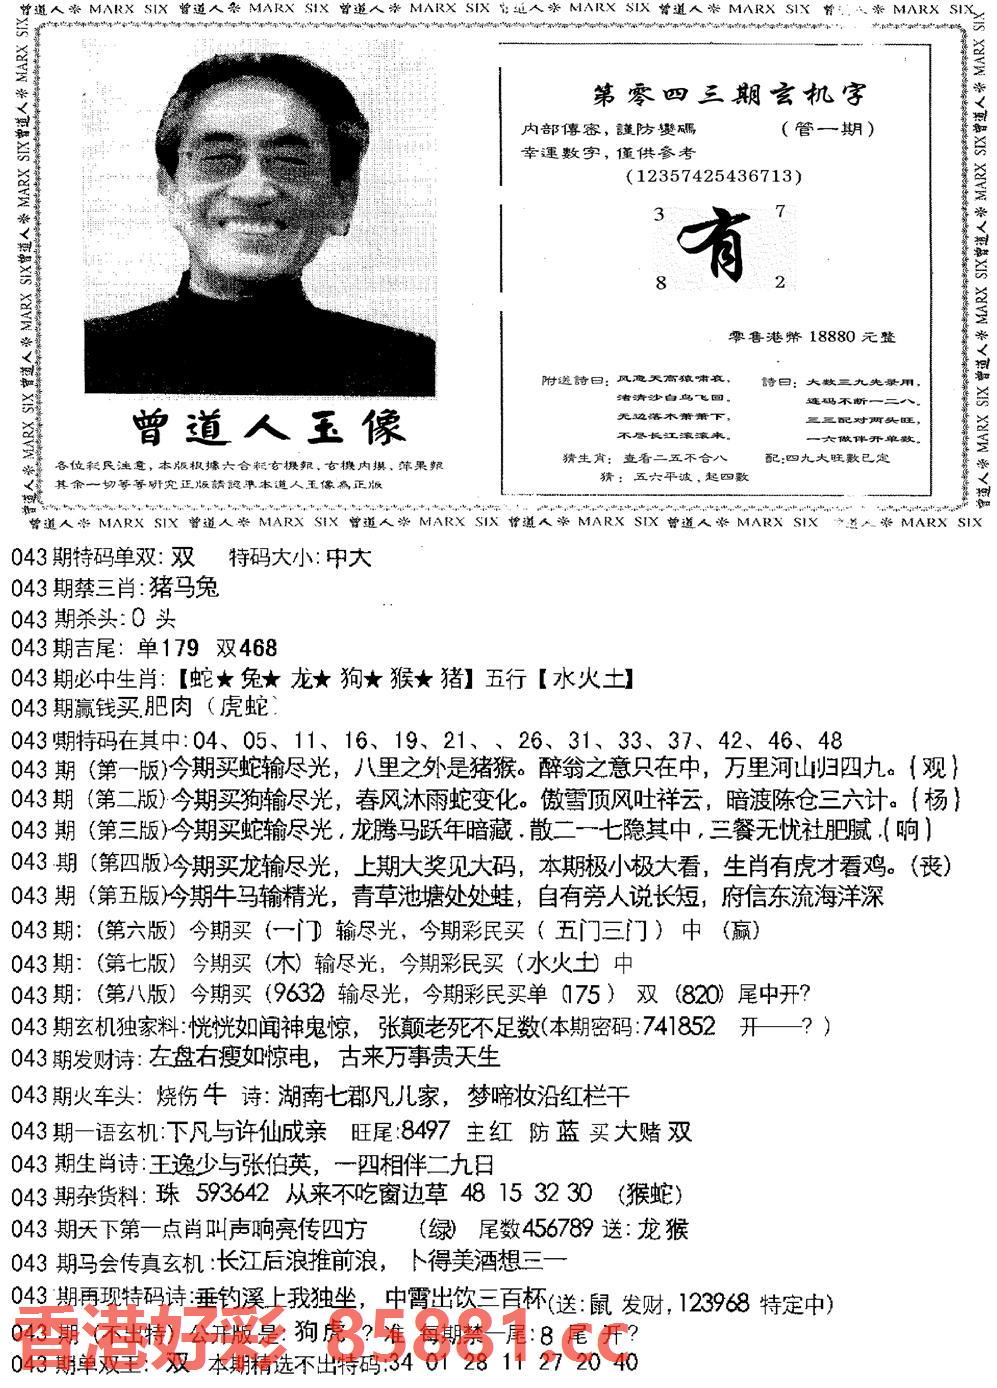 曾道人❊ MARX SIX 曾道人❊ MARX SIX 曾道人❊ MARX SIX 曾道人❊ MARX SIX 曾道人❊ MARX SIX 曾道人❊ MARX SIX
第零四三期玄机字
内部傳密，謹防變碼 （管一期）
幸運數字，僅供參考
(12357425436713)
3 7
有
8 2
零售港幣 18880 元整
附送詩曰：风急天高猿啸哀，
渚清沙白鸟飞回。
无边落木萧萧下，
不尽长江滚滚来。
詩曰：大数三九先录用，
连码不断一二八。
三三配对两头旺，
一六做伴开单数。
猜生肖：查看二五不合八 配:四九大旺数已定
猜：五六平波，起四數
曾道人玉像
各位彩民注意，本版根據六合彩玄機報，玄機内摸，蘋果報
其余一切等等研究正版請認準本道人玉像為正版
曾道人❊ MARX SIX 曾道人❊ MARX SIX 曾道人❊ MARX SIX 曾道人❊ MARX SIX 曾道人❊ MARX SIX 曾道人❊ MARX SIX
043期特码单双: 双 特码大小: 中大
043期禁三肖: 猪马兔
043期杀头: 0 头
043期吉尾: 单179 双468
043期必中生肖:【蛇★兔★龙★狗★猴★猪】五行【水火土】
043期赢钱买.肥肉（虎蛇）
043期特码在其中: 04、05、11、16、19、21、、26、31、33、37、42、46、48
043期（第一版)今期买蛇输尽光，八里之外是猪猴。醉翁之意只在中，万里河山归四九。{观}
043期（第二版)今期买狗输尽光，春风沐雨蛇变化。傲雪顶风吐祥云，暗渡陈仓三六计。{杨}
043期（第三版)今期买蛇输尽光，龙腾马跃年暗藏.散二一七隐其中,三餐无忧社肥腻.{响}
043期（第四版)今期买龙输尽光，上期大奖见大码，本期极小极大看，生肖有虎才看鸡。(丧)
043期（第五版)今期牛马输精光，青草池塘处处蛙，自有旁人说长短，府信东流海洋深
043期:（第六版）今期买（一门）输尽光，今期彩民买（五门三门）中（赢）
043期:（第七版）今期买（木）输尽光，今期彩民买（水火土）中
043期:（第八版）今期买（9632）输尽光，今期彩民买单（175）双（820）尾中开?
043期玄机独家料: 恍恍如闻神鬼惊，张颠老死不足数(本期密码: 741852 开——？)
043期发财诗: 左盘右瘦如惊电，古来万事贵天生
043期火车头: 烧伤牛 诗: 湖南七郡凡儿家，梦啼妆沿红栏干
043期一语玄机: 下凡与许仙成亲 旺尾: 8497 主红 防蓝 买大赌双
043期生肖诗: 王逸少与张伯英，一四相伴二九日
043期杂货料: 珠 593642 从来不吃窗边草 48 15 32 30 （猴蛇）
043期天下第一点肖叫声响亮传四方 （绿） 尾数456789 送: 龙猴
043期马会传真玄机: 长江后浪推前浪，卜得美酒想三一
043期再现特码诗: 垂钓溪上我独坐，中霄出饮三百杯(送: 鼠 发财, 123968 特定中)
043期（不出特）公开版是: 狗虎？准 每期禁一尾: 8 尾 开？
043期单双王: 双 本期精选不出特码: 34 01 28 11 27 20 40
香港好彩 85881.cc